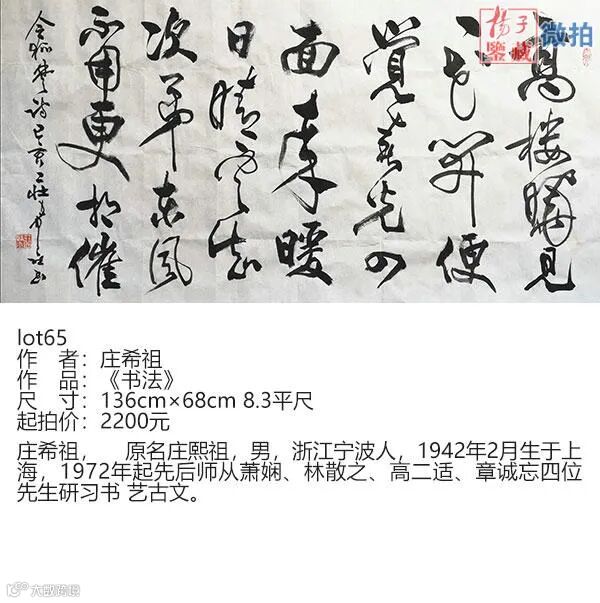 高樓曉見
一花開便
覺春光四
面來暖
日晴雲知
次第東風
不用更相催
令狐楚詩己亥
揚子鑒藏
微拍
lot65
作 者：庄希祖
作 品：《书法》
尺 寸：136cm×68cm 8.3平尺
起拍价：2200元
庄希祖， 原名庄熙祖，男，浙江宁波人，1942年2月生于上
海，1972年起先后师从萧娴、林散之、高二适、章诚忘四位
先生研习书 艺古文。
大数跨境